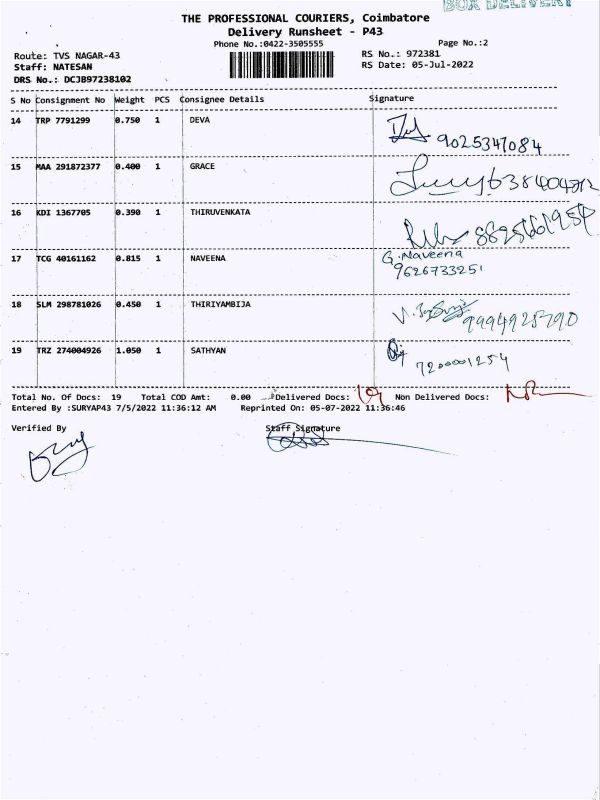 BOX DELIVERY
THE PROFESSIONAL COURIERS, Coimbatore
Delivery Runsheet - P43
Phone No.:0422-3505555
Page No.:2
Route: TVS NAGAR-43
RS No.: 972381
Staff: NATESAN
RS Date: 05-Jul-2022
DRS No.: DCJB97238102
S No Consignment No Weight PCS Consignee Details Signature
14 TRP 7791299 0.750 1 DEVA
9025347084
15 MAA 291872377 0.400 1 GRACE
16 KDI 1367705 0.390 1 THIRUVENKATA
17 TCG 40161162 0.815 1 NAVEENA G.Naveena
9626733251
18 SLM 298781026 0.450 1 THIRIYAMBIJA
9994925790
19 TRZ 274004926 1.050 1 SATHYAN
7200001254
Total No. Of Docs: 19 Total COD Amt: 0.00 Delivered Docs: 19 Non Delivered Docs:
Entered By :SURYAP43 7/5/2022 11:36:12 AM Reprinted On: 05-07-2022 11:36:46
Verified By Staff Signature